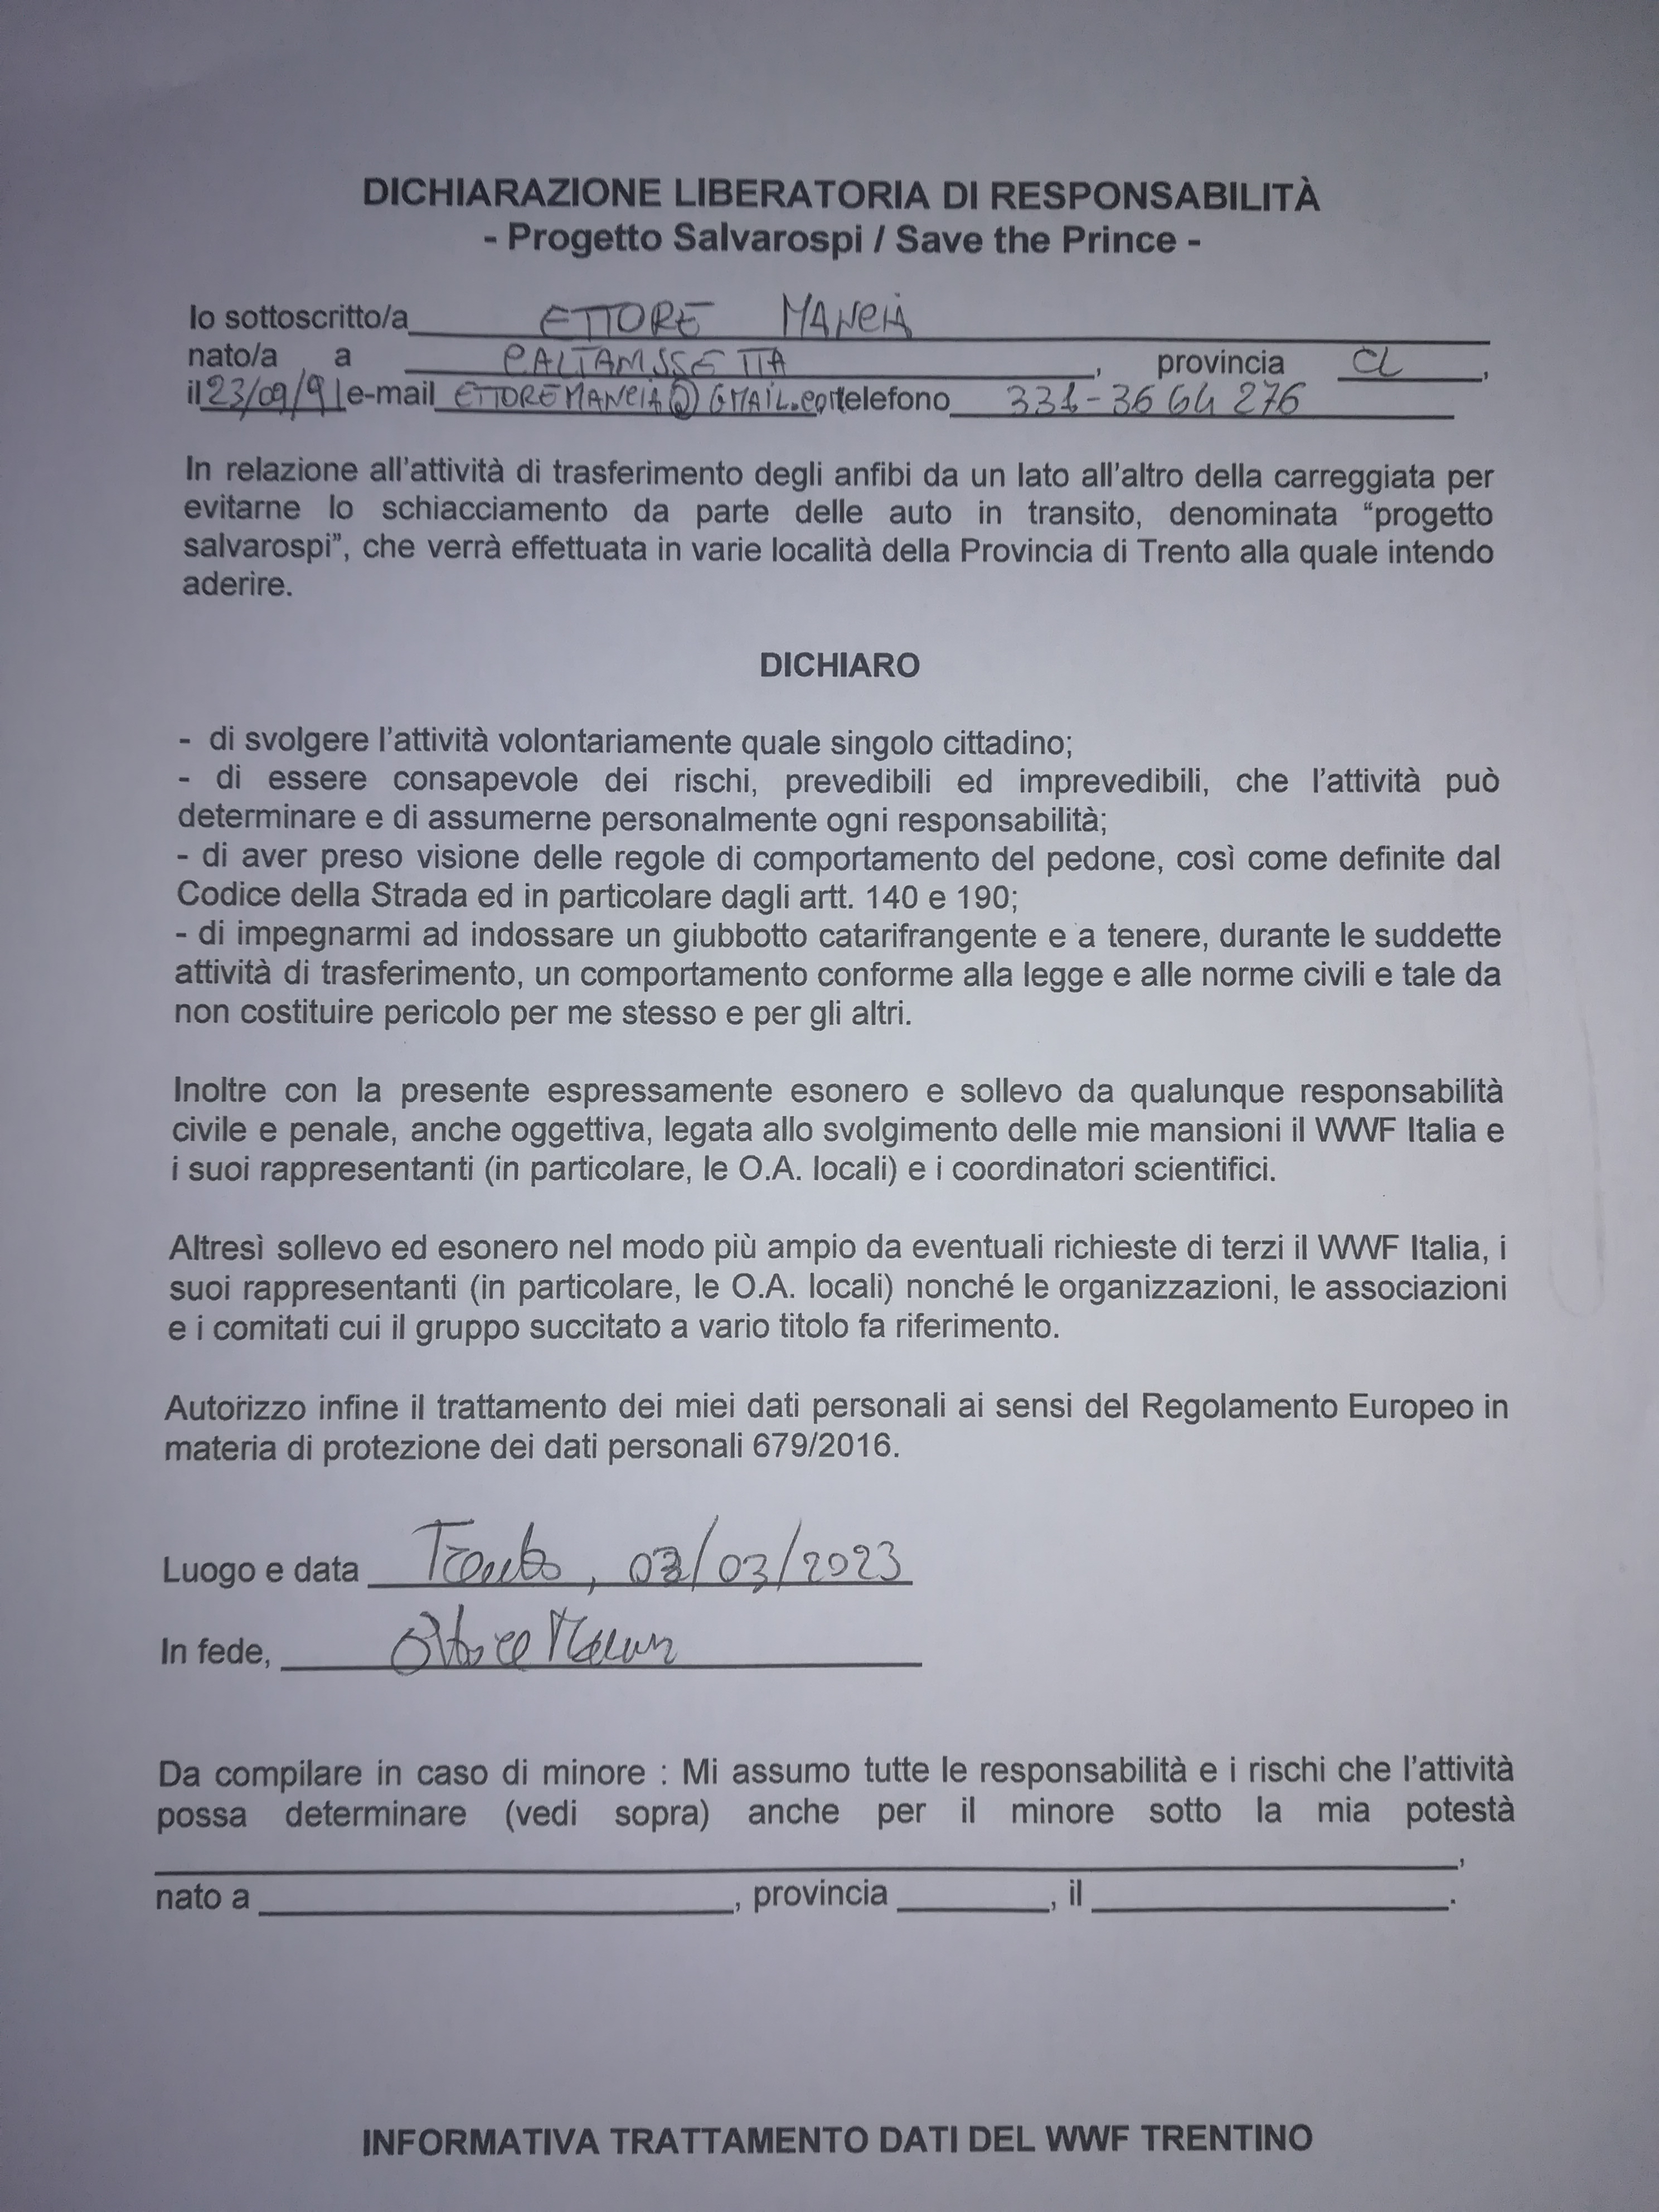 DICHIARAZIONE LIBERATORIA DI RESPONSABILITÀ
- Progetto Salvarospi / Save the Prince -
Io sottoscritto/a ETTORE MANCIA
nato/a a CALTANISSETTA, provincia CL,
il 23/09/91 e-mail ETTOREMANCIA@GMAIL.com telefono 331-3664276
In relazione all'attività di trasferimento degli anfibi da un lato all'altro della carreggiata per
evitarne lo schiacciamento da parte delle auto in transito, denominata “progetto
salvarospi”, che verrà effettuata in varie località della Provincia di Trento alla quale intendo
aderire.
DICHIARO
- di svolgere l'attività volontariamente quale singolo cittadino;
- di essere consapevole dei rischi, prevedibili ed imprevedibili, che l'attività può
determinare e di assumerne personalmente ogni responsabilità;
- di aver preso visione delle regole di comportamento del pedone, così come definite dal
Codice della Strada ed in particolare dagli artt. 140 e 190;
- di impegnarmi ad indossare un giubbotto catarifrangente e a tenere, durante le suddette
attività di trasferimento, un comportamento conforme alla legge e alle norme civili e tale da
non costituire pericolo per me stesso e per gli altri.
Inoltre con la presente espressamente esonero e sollevo da qualunque responsabilità
civile e penale, anche oggettiva, legata allo svolgimento delle mie mansioni il WWF Italia e
i suoi rappresentanti (in particolare, le O.A. locali) e i coordinatori scientifici.
Altresì sollevo ed esonero nel modo più ampio da eventuali richieste di terzi il WWF Italia, i
suoi rappresentanti (in particolare, le O.A. locali) nonché le organizzazioni, le associazioni
e i comitati cui il gruppo succitato a vario titolo fa riferimento.
Autorizzo infine il trattamento dei miei dati personali ai sensi del Regolamento Europeo in
materia di protezione dei dati personali 679/2016.
Luogo e data Trento, 03/03/2023
In fede, Ettore Mancia
Da compilare in caso di minore : Mi assumo tutte le responsabilità e i rischi che l'attività
possa determinare (vedi sopra) anche per il minore sotto la mia potestà
,
nato a , provincia , il .
INFORMATIVA TRATTAMENTO DATI DEL WWF TRENTINO